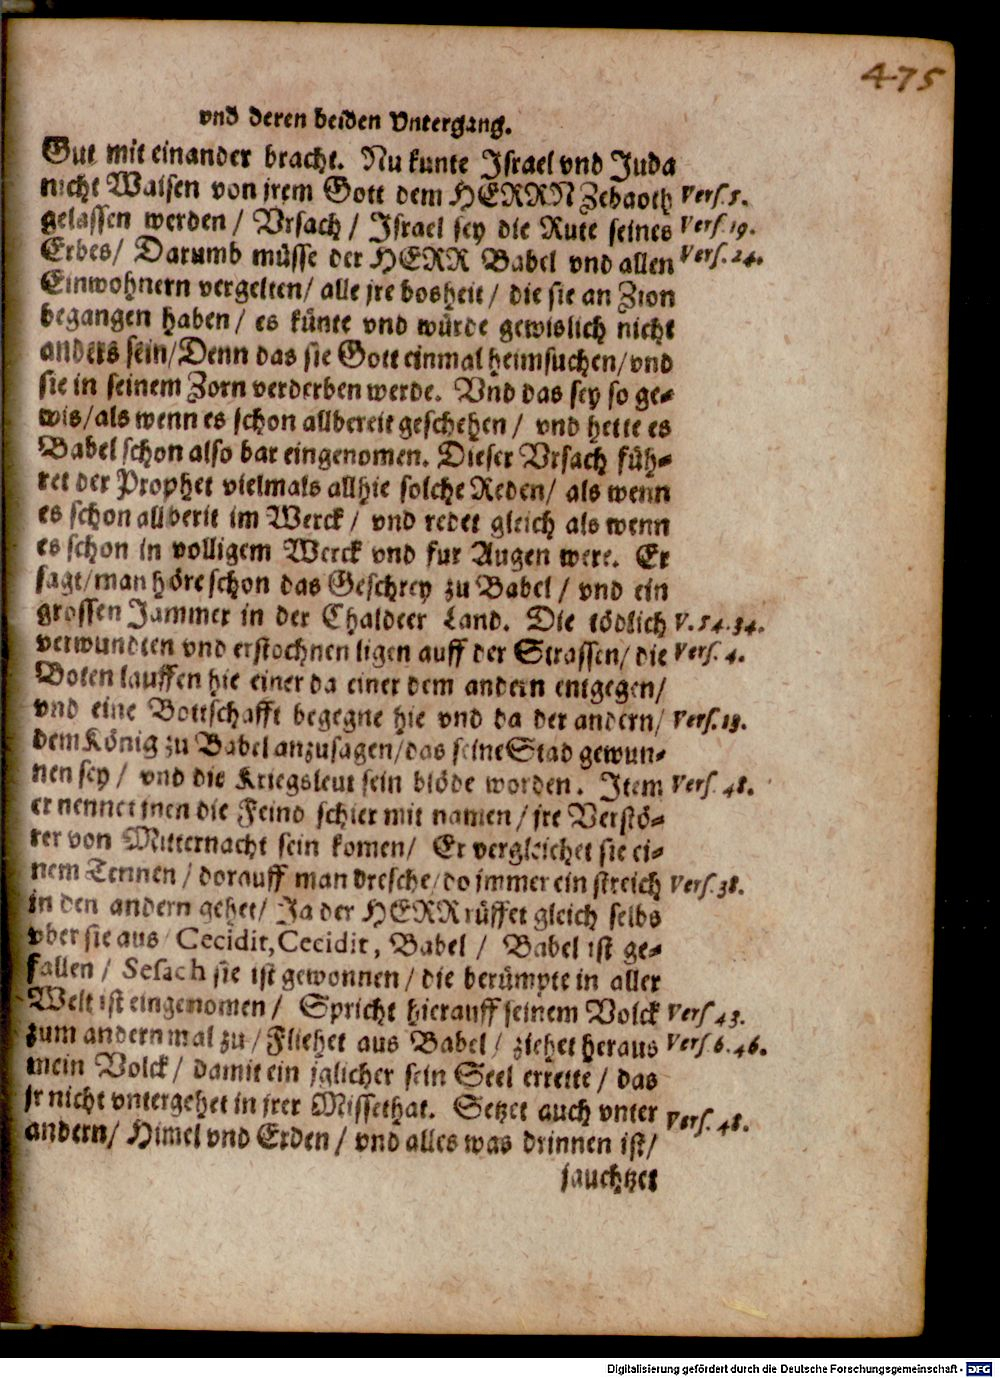 475
vnd deren beiden Vntergang.
Gut mit einander bracht. Nu kunte Israel vnd Juda
nicht Waisen von jrem Gott dem HERRN Zebaoth Vers. 5.
gelassen werden / Vrsach / Israel sey die Rute seines Vers. 19.
Erbes / Darumb müsse der HERR Babel vnd allen Vers. 24.
Einwohnern vergelten / alle jre bosheit / die sie an Zion
begangen haben / es künte vnd würde gewislich nicht
anders sein / Denn das sie Gott einmal heimsuchen / vnd
sie in seinem Zorn verderben werde. Vnd das sey so ge-
wis / als wenn es schon allbereit geschehen / vnd hette es
Babel schon also bar eingenomen. Dieser Vrsach füh-
ret der Prophet vielmals allhie solche Reden / als wenn
es schon allberit im Werck / vnd redet gleich als wenn
es schon in volligem Werck vnd fur Augen were. Er
sagt / man höre schon das Geschrey zu Babel / vnd ein
grossen Jammer in der Chaldeer Land. Die tödlich V. 54. 34.
verwundten vnd erstochnen ligen auff der Strassen / die Vers. 4.
Boten lauffen hie einer da einer dem andern entgegen /
vnd eine Bottschafft begegne hie vnd da der andern / Vers. 13.
dem König zu Babel anzusagen / das seine Stad gewun-
nen sey / vnd die Kriegsleut sein blöde worden. Item Vers. 48.
er nennet jnen die Feind schier mit namen / jre Verstö-
rer von Mitternacht sein komen / Er vergleichet sie ei-
nem Tennen / dorauff man dresche / do immer ein streich Vers. 38.
in den andern gehet / Ja der HERR rüffet gleich selbs
vber sie aus / Cecidit, Cecidit, Babel / Babel ist ge-
fallen / Sesach sie ist gewonnen / die berümpte in aller
Welt ist eingenomen / Spricht hierauff seinem Volck Vers 43.
zum andern mal zu / Fliehet aus Babel / ziehet heraus Vers. 6. 46.
mein Volck / damit ein jglicher sein Seel errette / das
jr nicht vntergehet in jrer Missethat. Setzet auch vnter
andern / Himel vnd Erden / vnd alles was drinnen ist / Vers. 48.
jauchtzet
Digitalisierung gefördert durch die Deutsche Forschungsgemeinschaft - DFG